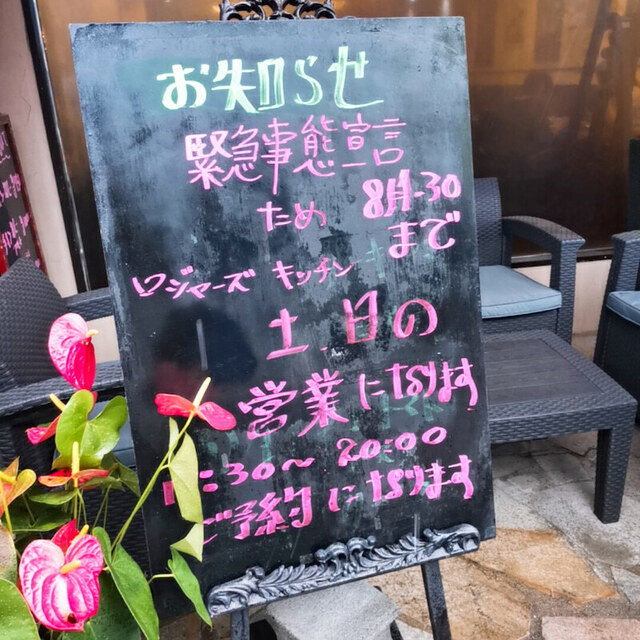 お知らせ
緊急事態宣言
ため 8月30
まで
ロジャーズ キッチン
土.日の
営業になります
11:30～20:00
ご予約になります